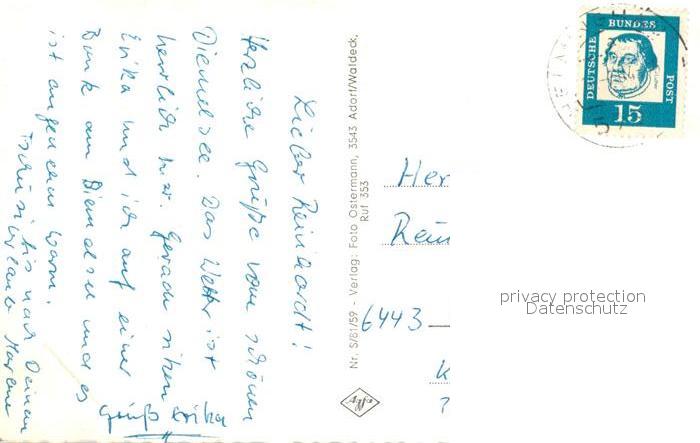 Lieber Reinhardt!
Herzliche Grüße vom schönen
Diemelsee. Das Wetter ist
herrlich hier. Gerade sitzen
Erika und ich auf einer
Bank am Diemelsee und es
ist angenehm warm.
Tschüsi bis nach Deinem
Urlaub
Gruß Erika
Nr. S/81/59 - Verlag: Foto Ostermann, 3543 Adorf/Waldeck,
Ruf 353
Agfa
DEUTSCHE
BUNDES
POST
15
Her
Rein
6443
K
?
privacy protection
Datenschutz